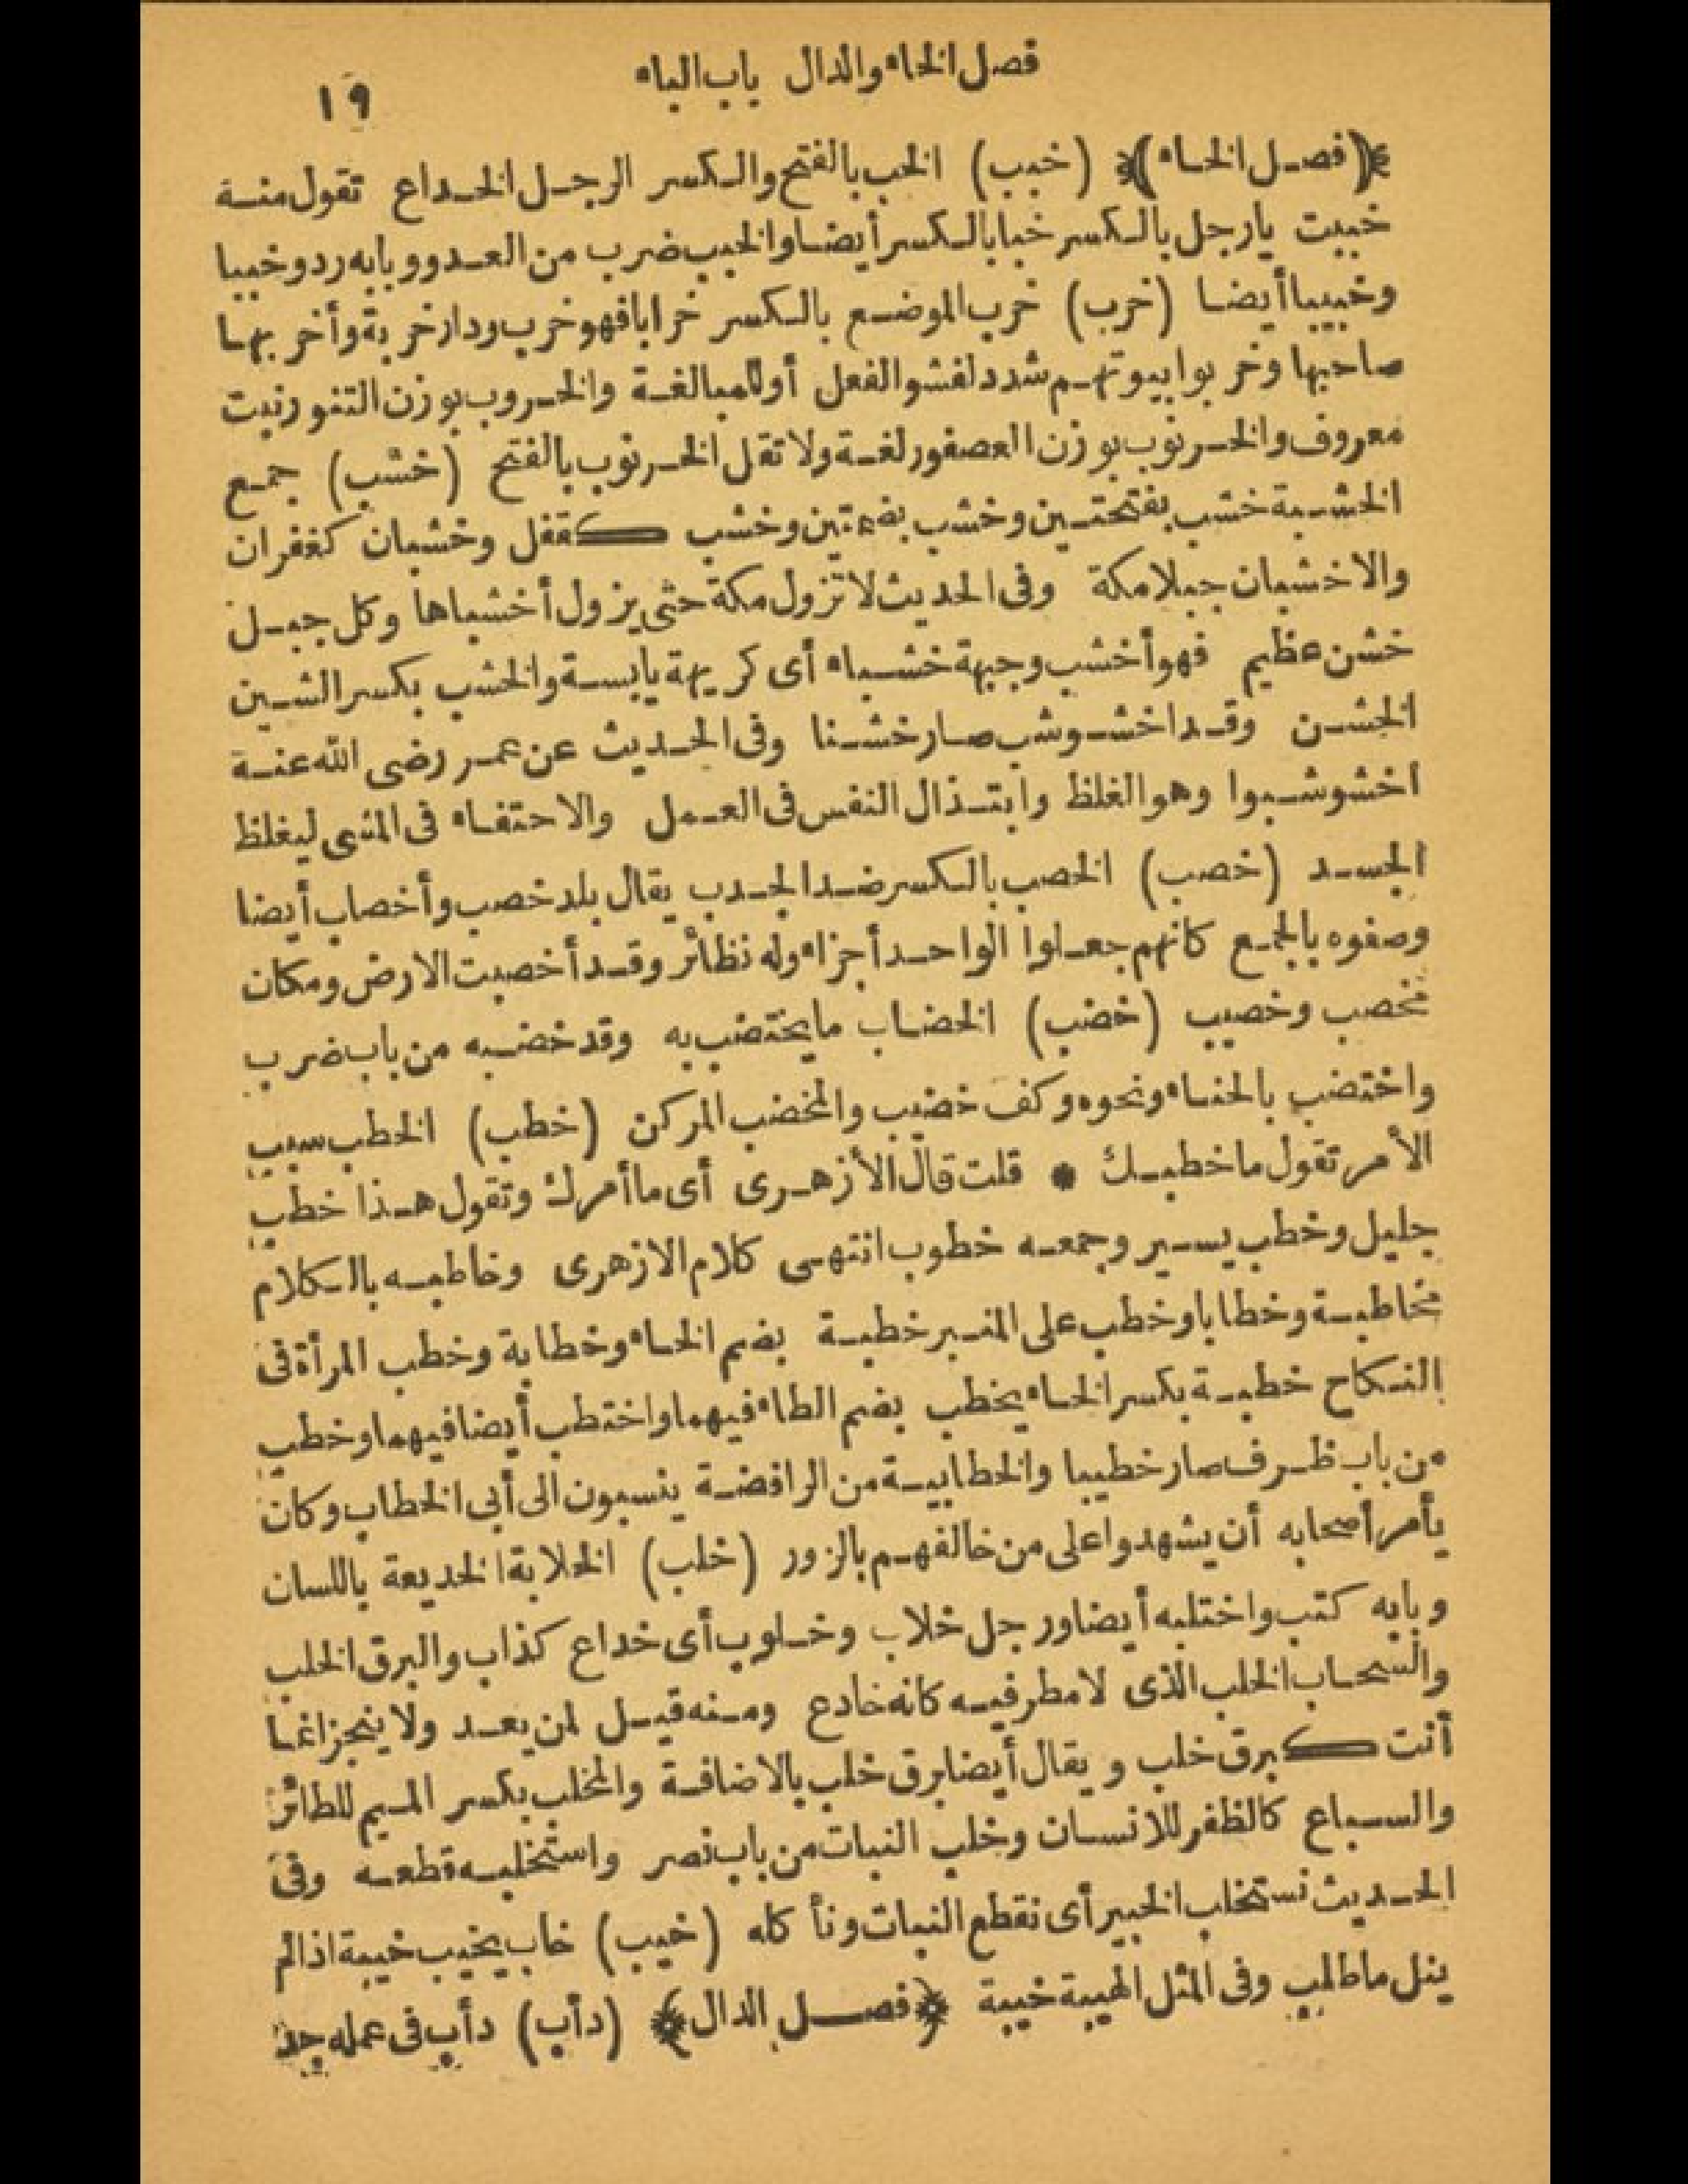 فصل الخاء والدال باب الباء
١٩
﴿(فصل الخاء)﴾ (خبب) الخب بالفتح والكسر الرجل الخداع تقول منه
خببت يا رجل بالكسر خبا بالكسر أيضا والخبب ضرب من العدو وبابه رد وخببا
وخبيبا أيضا (خرب) خرب الموضع بالكسر خرابا فهو خرب ودار خربة وأخربها
صاحبها وخربوا بيوتهم شدد لفشو الفعل أو للمبالغة والخروب بوزن التنور نبت
معروف والخرنوب بوزن العصفور لغة ولا تقل الخرنوب بالفتح (خشب) جمع
الخشبة خشب بفتحتين وخشب بضمتين وخشب كقفل وخشبان كغفران
والاخشبان جبلا مكة وفى الحديث لا تزول مكة حتى يزول أخشباها وكل جبل
خشن عظيم فهو أخشب وجبهة خشباء أى كريهة يابسة والخشب بكسر الشين
الخشن وقد اخشوشب صار خشنا وفى الحديث عن عمر رضى الله عنه
اخشوشبوا وهو الغلظ وابتذال النفس فى العمل والاحتفاء فى المشى ليغلظ
الجسد (خصب) الخصب بالكسر ضد الجدب يقال بلد خصب وأخصاب أيضا
وصفوه بالجمع كانهم جعلوا الواحد أجزاء وله نظائر وقد أخصبت الارض ومكان
مخصب وخصيب (خضب) الخضاب ما يختضب به وقد خضبه من باب ضرب
واختضب بالحناء ونحوه وكف خضيب والمخضب المركن (خطب) الخطب سبب
الأمر تقول ما خطبك * قلت قال الأزهرى أى ما أمرك وتقول هذا خطب
جليل وخطب يسير وجمعه خطوب انتهى كلام الازهرى وخاطبه بالكلام
مخاطبة وخطابا وخطب على المنبر خطبة بضم الخاء وخطابة وخطب المرأة فى
النكاح خطبة بكسر الخاء يخطب بضم الطاء فيهما واختطب أيضا فيهما وخطب
من باب ظرف صار خطيبا والخطابية من الرافضة ينسبون الى أبى الخطاب وكان
يأمر أصحابه أن يشهدوا على من خالفهم بالزور (خلب) الخلابة الخديعة باللسان
وبابه كتب واختلبه أيضا ورجل خلاب وخلوب أى خداع كذاب والبرق الخلب
والسحاب الخلب الذى لا مطر فيه كانه خادع ومنه قيل لمن يعد ولا ينجز انما
أنت كبرق خلب ويقال أيضا برق خلب بالاضافة والمخلب بكسر الميم للطائر
والسباع كالظفر للانسان وخلب النبات من باب نصر واستخلبه قطعه وفى
الحديث نستخلب الخبير أى نقطع النبات ونأكله (خيب) خاب يخيب خيبة اذا لم
ينل ما طلب وفى المثل الهيبة خيبة ﴿فصل الدال﴾ (دأب) دأب فى عمله جد